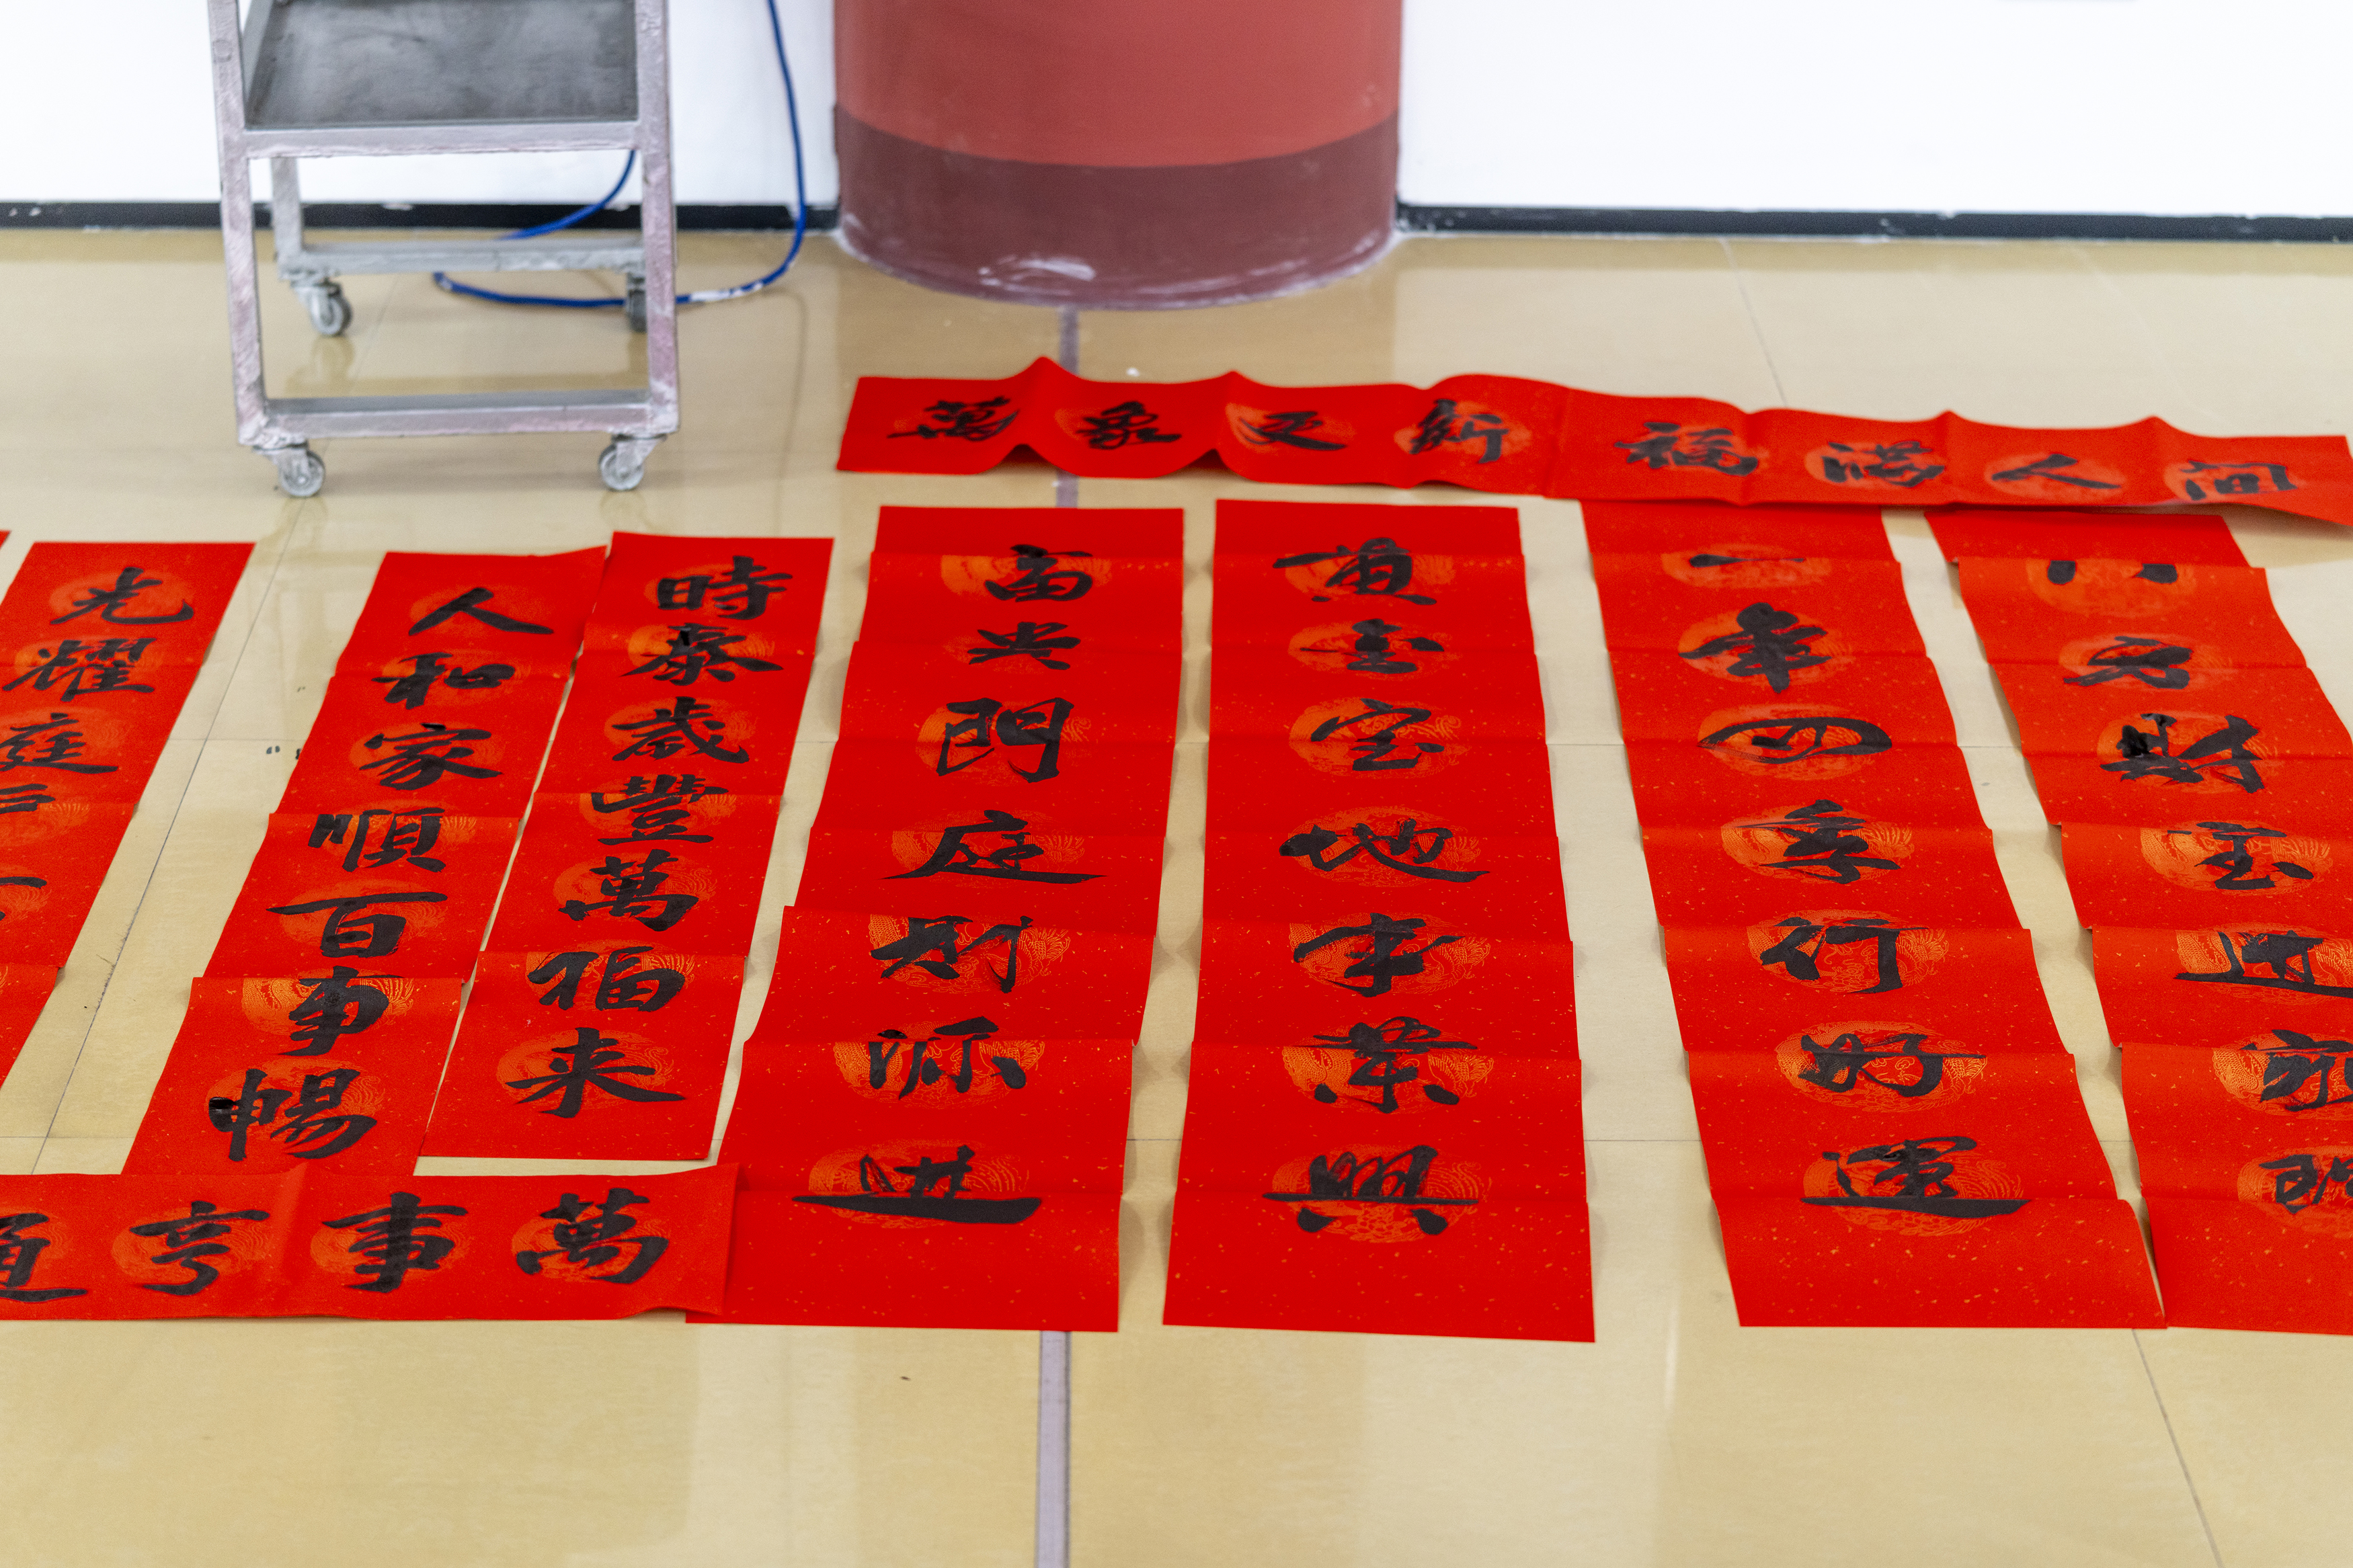 萬象更新福滿人间
八方財宝進家門
一年四季行好運
黄金宝地事業興
富贵門庭財源進
時泰歲豐萬福来
人和家順百事暢
光耀庭戶
萬事亨通